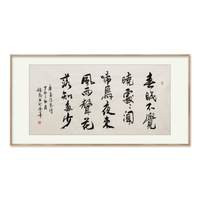 春眠不覺
曉處々聞
啼鳥夜來
風雨聲花
落知多少